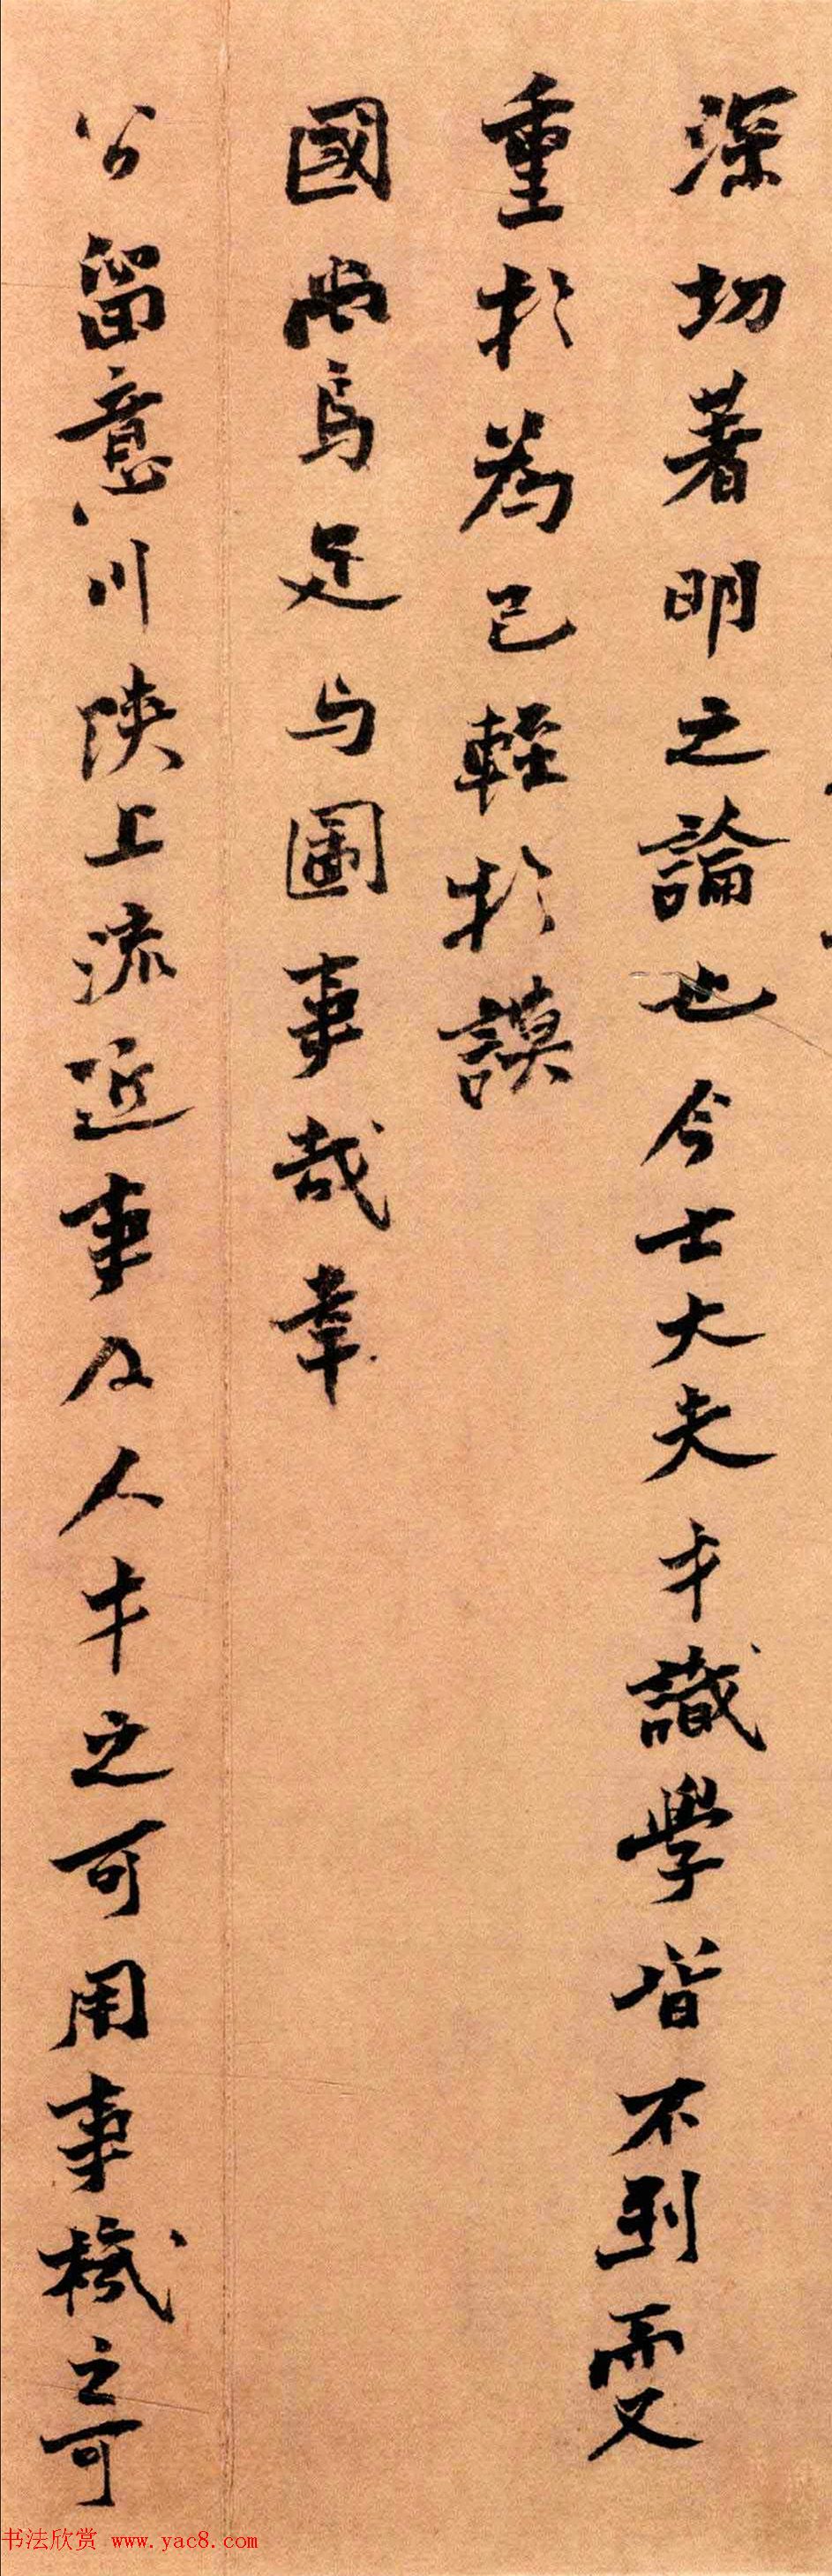 深切著明之論也今士大夫才識學皆不到更
重於為己輕於謨
國尚焉足与圖事哉幸
公留意川陝上流近事及人才之可用事機之可
书法欣赏 www.yac8.com